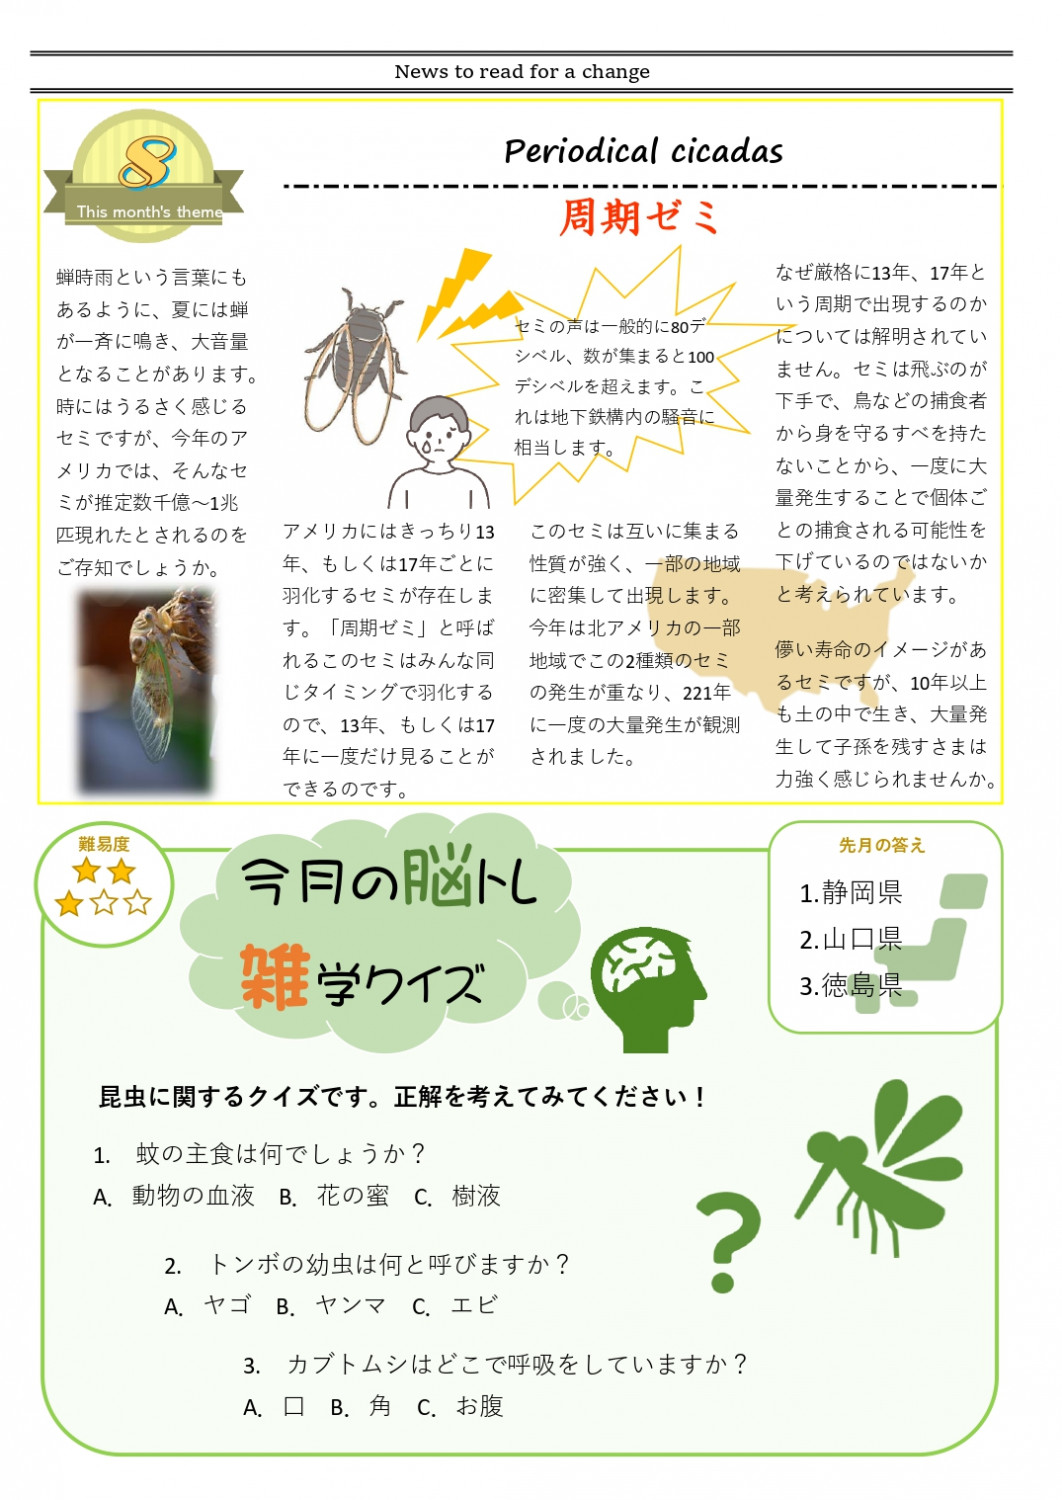 News to read for a change
8
This month's theme
Periodical cicadas
周期ゼミ
蝉時雨という言葉にも
あるように、夏には蝉
が一斉に鳴き、大音量
となることがあります。
時にはうるさく感じる
セミですが、今年のア
メリカでは、そんなセ
ミが推定数千億～1兆
匹現れたとされるのを
ご存知でしょうか。
セミの声は一般的に80デ
シベル、数が集まると100
デシベルを超えます。こ
れは地下鉄構内の騒音に
相当します。
アメリカにはきっちり13
年、もしくは17年ごとに
羽化するセミが存在しま
す。「周期ゼミ」と呼ば
れるこのセミはみんな同
じタイミングで羽化する
ので、13年、もしくは17
年に一度だけ見ることが
できるのです。
このセミは互いに集まる
性質が強く、一部の地域
に密集して出現します。
今年は北アメリカの一部
地域でこの2種類のセミ
の発生が重なり、221年
に一度の大量発生が観測
されました。
なぜ厳格に13年、17年と
いう周期で出現するのか
については解明されてい
ません。セミは飛ぶのが
下手で、鳥などの捕食者
から身を守るすべを持た
ないことから、一度に大
量発生することで個体ご
との捕食される可能性を
下げているのではないか
と考えられています。
儚い寿命のイメージがあ
るセミですが、10年以上
も土の中で生き、大量発
生して子孫を残すさまは
力強く感じられませんか。
難易度
今月の脳トレ
雑学クイズ
先月の答え
1.静岡県
2.山口県
3.徳島県
昆虫に関するクイズです。正解を考えてみてください！
1. 蚊の主食は何でしょうか？
A. 動物の血液 B. 花の蜜 C. 樹液
2. トンボの幼虫は何と呼びますか？
A. ヤゴ B. ヤンマ C. エビ
3. カブトムシはどこで呼吸をしていますか？
A. 口 B. 角 C. お腹
?